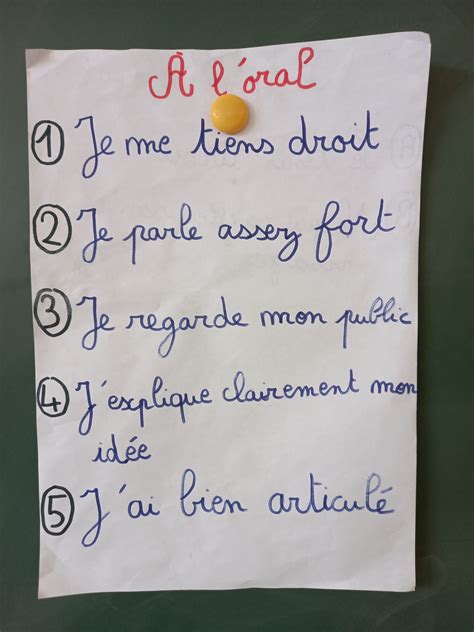 À l'oral
① Je me tiens droit
② Je parle assez fort
③ Je regarde mon public
④ J'explique clairement mon
idée
⑤ J'ai bien articulé